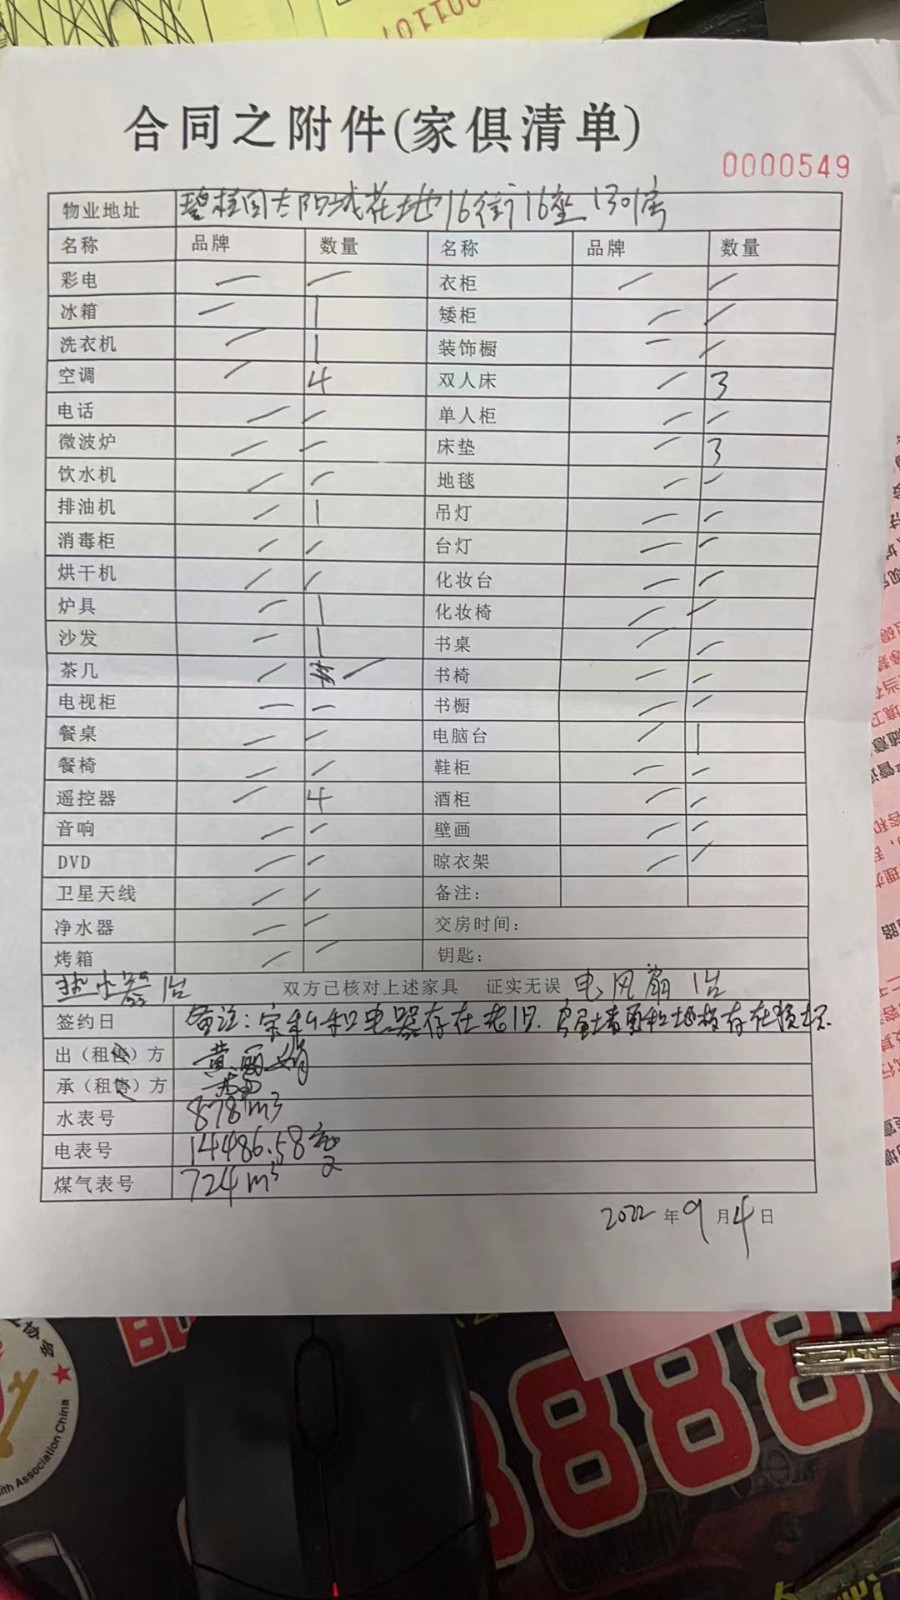 合同之附件(家俱清单)
0000549
物业地址 碧桂园太阳城花地16街16座1301房
名称 品牌 数量 名称 品牌 数量
彩电 — — 衣柜 — —
冰箱 — 1 矮柜 — —
洗衣机 — 1 装饰橱 — —
空调 — 4 双人床 — 3
电话 — — 单人柜 — —
微波炉 — — 床垫 — 3
饮水机 — — 地毯 — —
排油机 — 1 吊灯 — —
消毒柜 — — 台灯 — —
烘干机 — — 化妆台 — —
炉具 — 1 化妆椅 — —
沙发 — 1 书桌 — —
茶几 — — 书椅 — —
电视柜 — — 书橱 — —
餐桌 — — 电脑台 — 1
餐椅 — — 鞋柜 — —
遥控器 — 4 酒柜 — —
音响 — — 壁画 — —
DVD — — 晾衣架 — —
卫星天线 — — 备注:
净水器 — — 交房时间:
烤箱 — — 钥匙:
热水器1台 双方已核对上述家具 证实无误 电风扇1台
签约日 备注:家私和电器存在老旧.房屋墙面和地板存在损坏.
出(租售)方 黄丽娟
承(租售)方
水表号 878m3
电表号 14486.58
煤气表号 724m3
2022年9月4日
8888
lth Association China